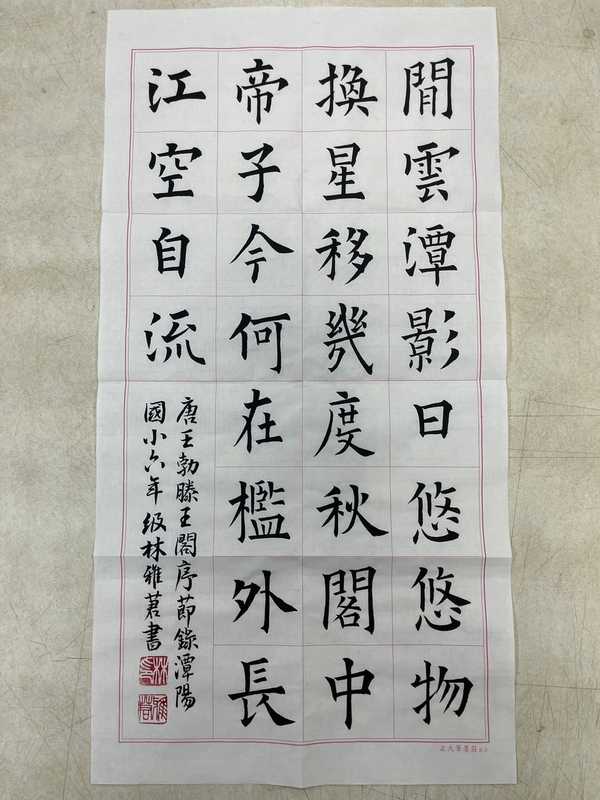 閒雲潭影日悠悠物
換星移幾度秋閣中
帝子今何在檻外長
江空自流
唐王勃滕王閣序節錄潭陽
國小六年級林雅茗書